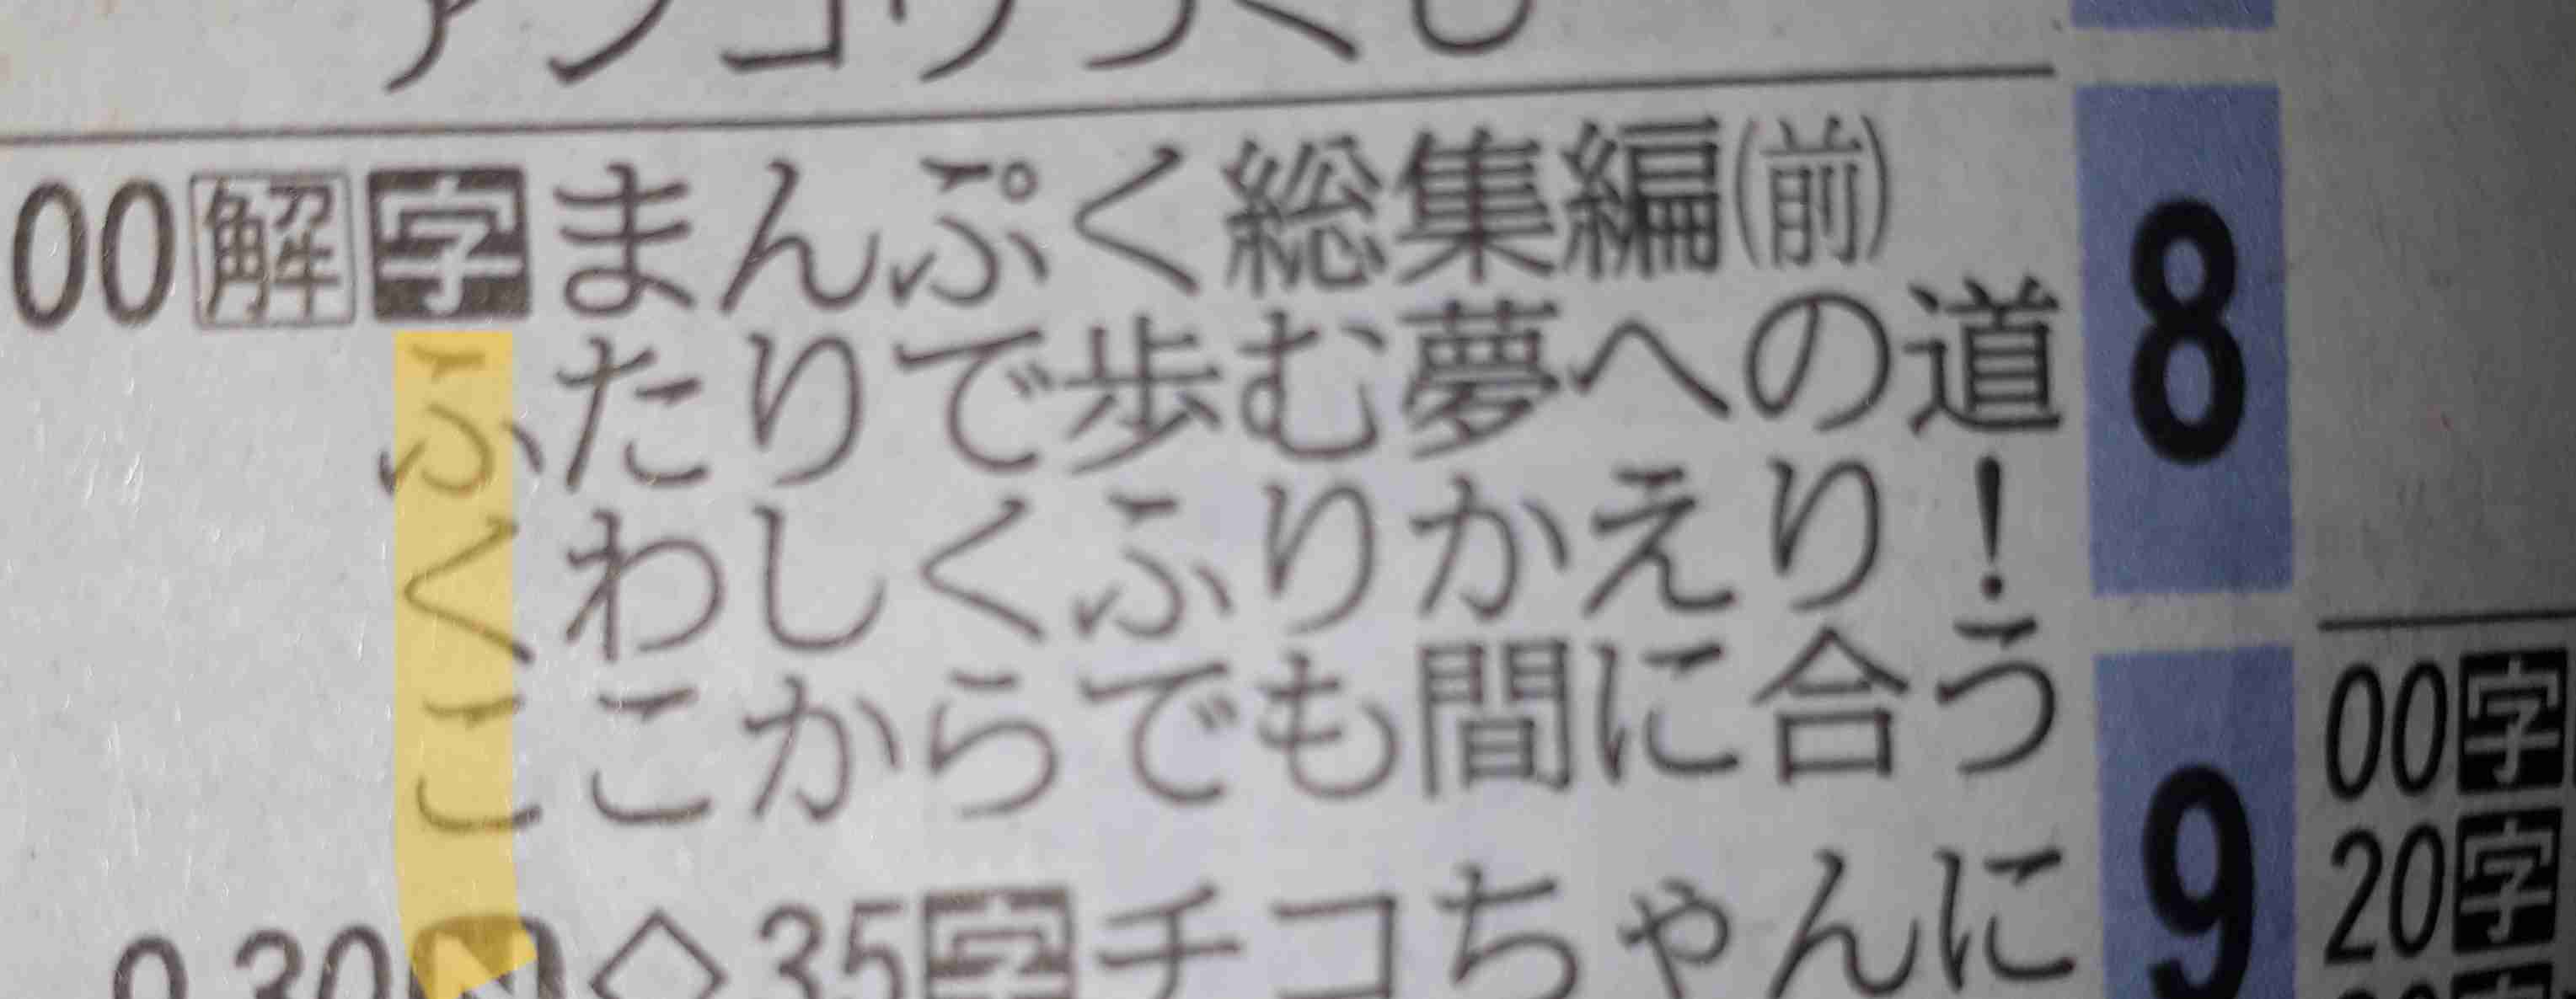 アンコウづくし
00解字まんぷく総集編(前)
ふたりで歩む夢への道
くわしくふりかえり!
ここからでも間に合う
9.30N◇35字チコちゃんに
8
9
00字
20字